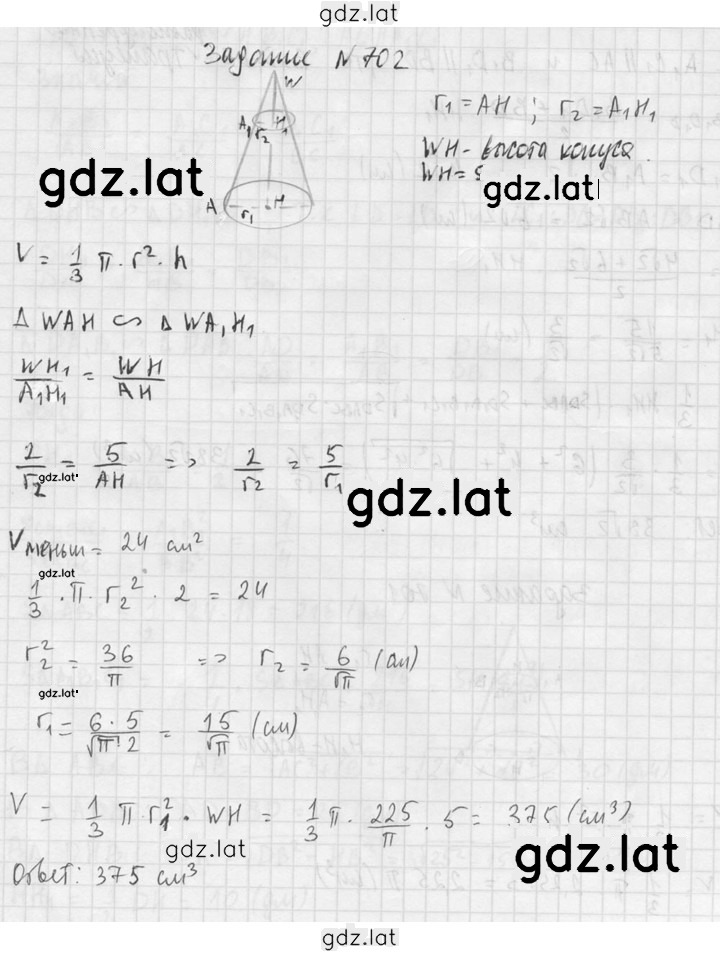 gdz.lat
Задание N 702
W
A₁ r₂ H₁
A r₁ H
r₁ = AH ; r₂ = A₁H₁
WH - высота конуса.
WH = 5
gdz.lat
gdz.lat
V = 1/3 π · r² · h
Δ WAH ∽ Δ WA₁H₁
WH₁/A₁H₁ = WH/AH
2/r₂ = 5/AH => 2/r₂ = 5/r₁
gdz.lat
gdz.lat
Vменьш = 24 см²
gdz.lat
1/3 · π · r₂² · 2 = 24
r₂² = 36/π => r₂ = 6/√π (см)
gdz.lat
r₁ = 6·5/√π·2 = 15/√π (см)
V = 1/3 π · r₁² · WH = 1/3 π · 225/π · 5 = 375 (см³)
gdz.lat
gdz.lat
Ответ: 375 см³
gdz.lat